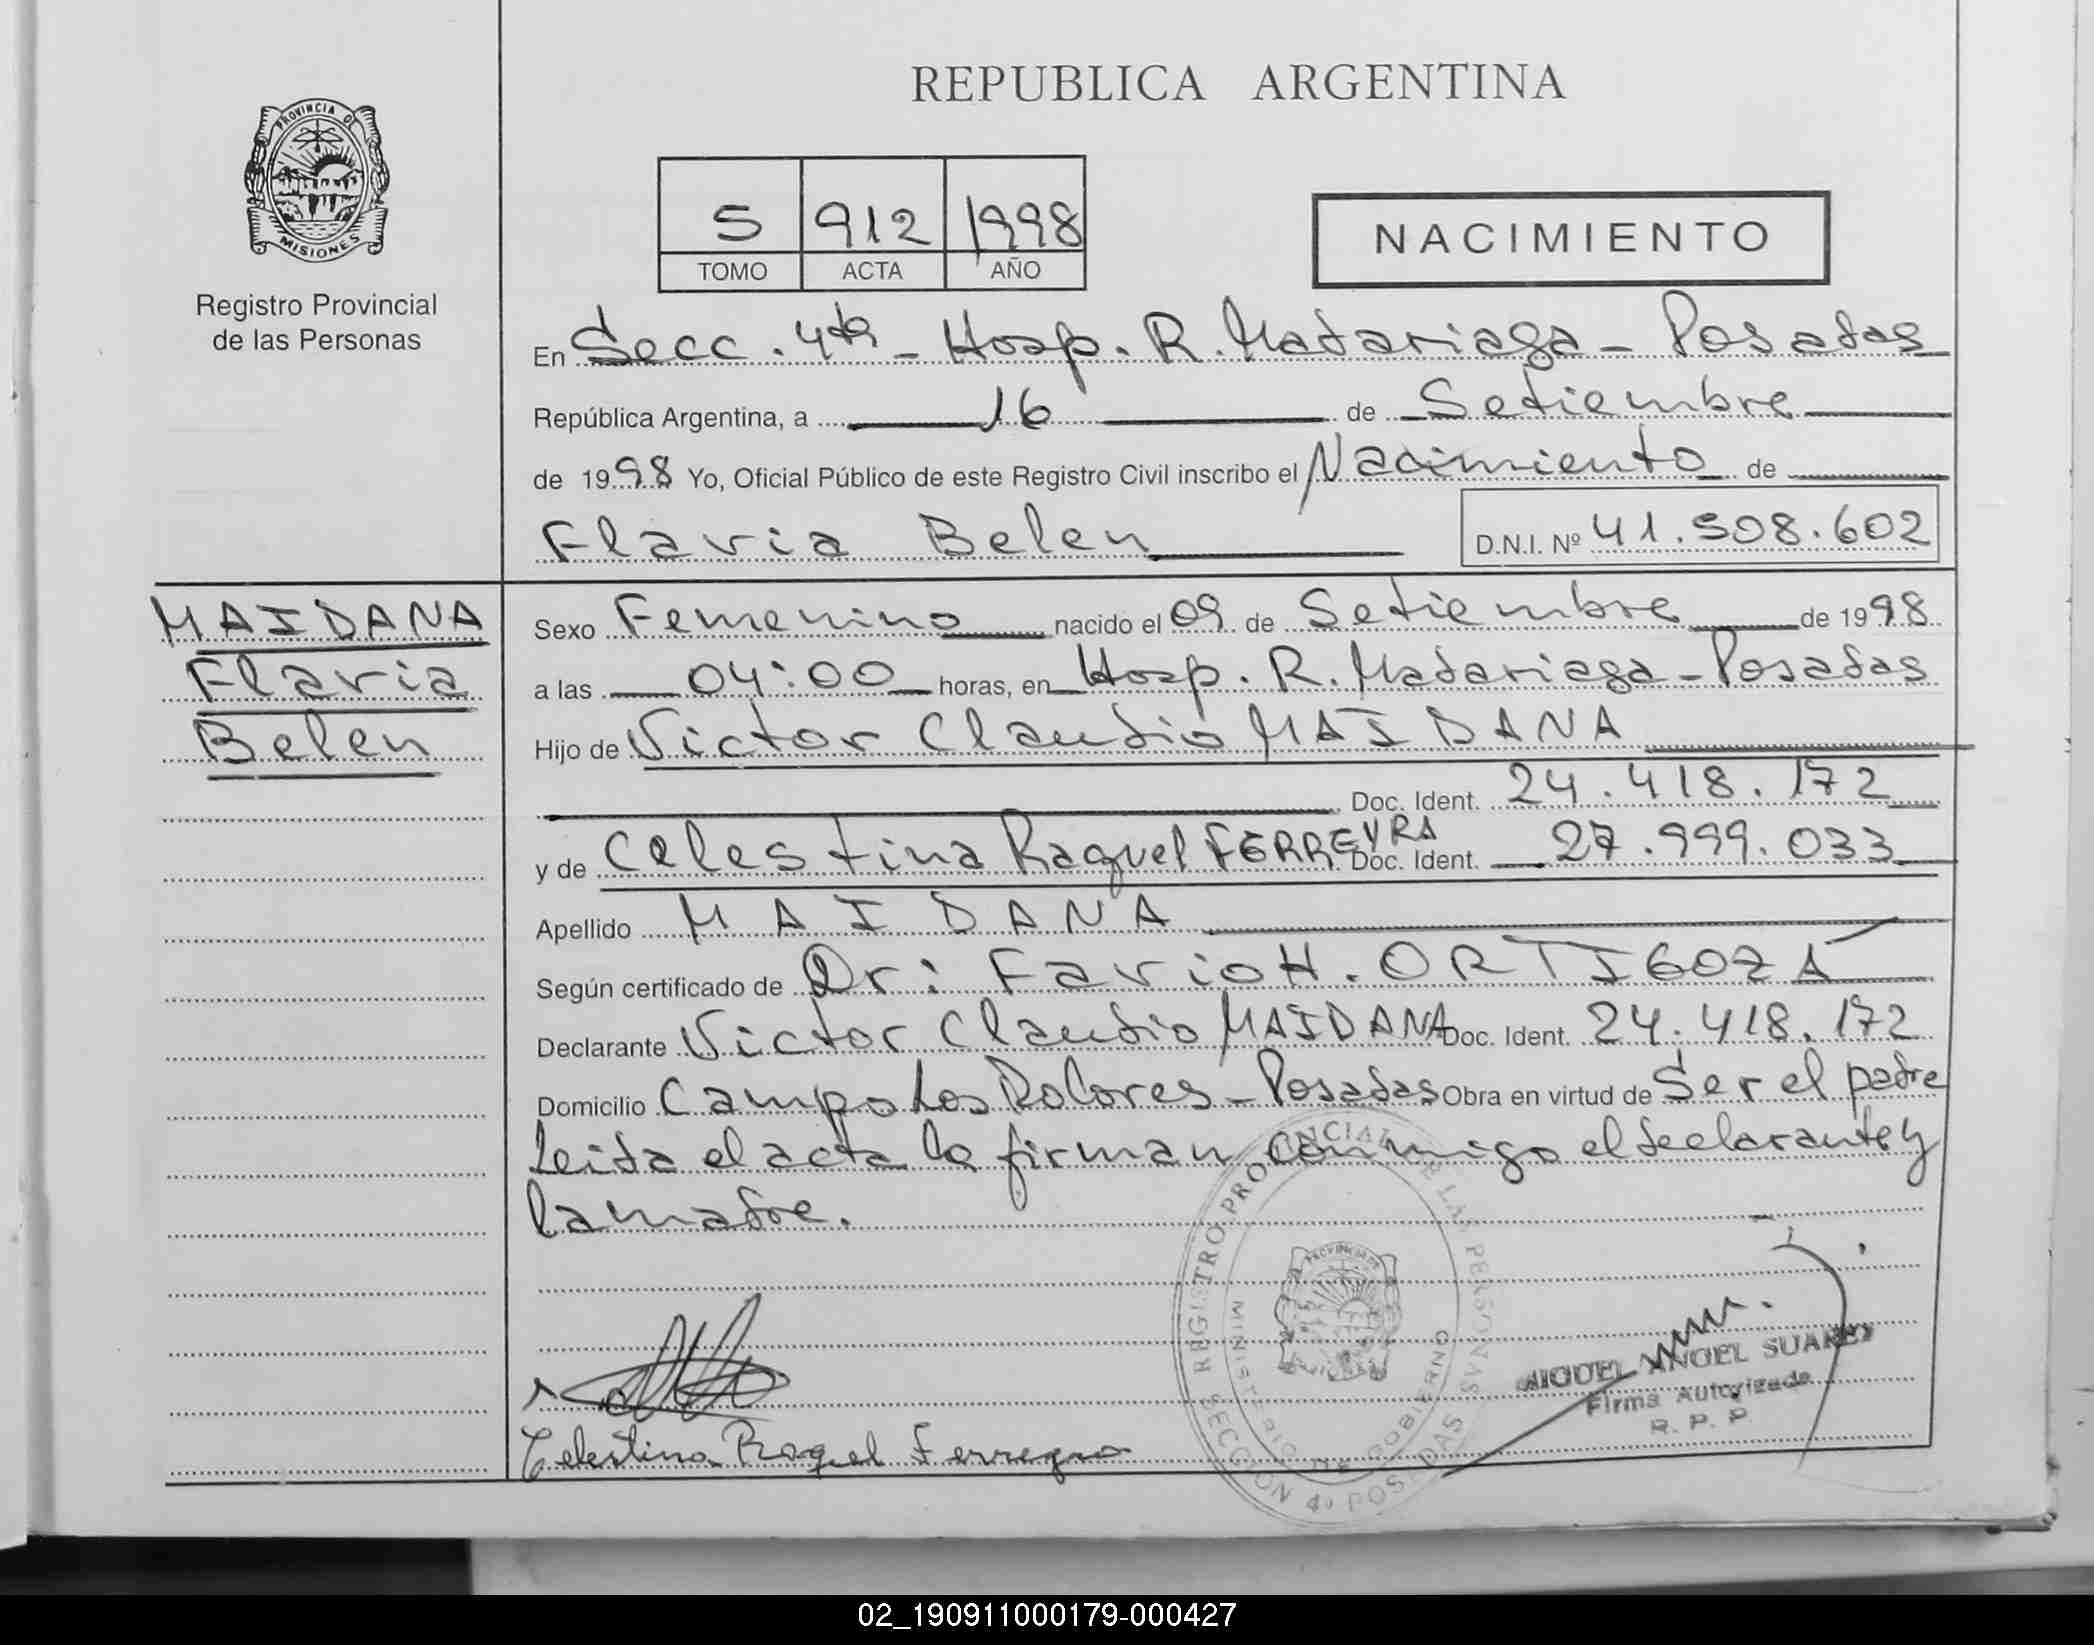 REPUBLICA ARGENTINA
PROVINCIA DE
MISIONES
Registro Provincial
de las Personas
5 912 1998
TOMO ACTA AÑO
NACIMIENTO
En Secc. 4ta - Hosp. R. Madariaga - Posadas
República Argentina, a 16 de Setiembre
de 1998 Yo, Oficial Público de este Registro Civil inscribo el Nacimiento de
Flavia Belen D.N.I. Nº 41.508.602
MAIDANA
Flavia
Belen
Sexo Femenino nacido el 09 de Setiembre de 1998
a las 04:00 horas, en Hosp. R. Madariaga - Posadas
Hijo de Victor Claudio MAIDANA
Doc. Ident. 24.418.172
y de Celestina Raquel FERREYRA Doc. Ident. 27.999.033
Apellido MAIDANA
Según certificado de Dr: Favio H. ORTIGOZA
Declarante Victor Claudio MAIDANA Doc. Ident. 24.418.172
Domicilio Campo Los Dolores - Posadas Obra en virtud de Ser el padre
Leida el acta la firman conmigo el declarante y
la madre.
REGISTRO PROVINCIAL DE LAS PERSONAS
MINISTERIO DE GOBIERNO
SECCION 4º POSADAS
MIGUEL ANGEL SUAREZ
Firma Autorizada
R. P. P.
Celestina Raquel Ferreyra
02_190911000179-000427